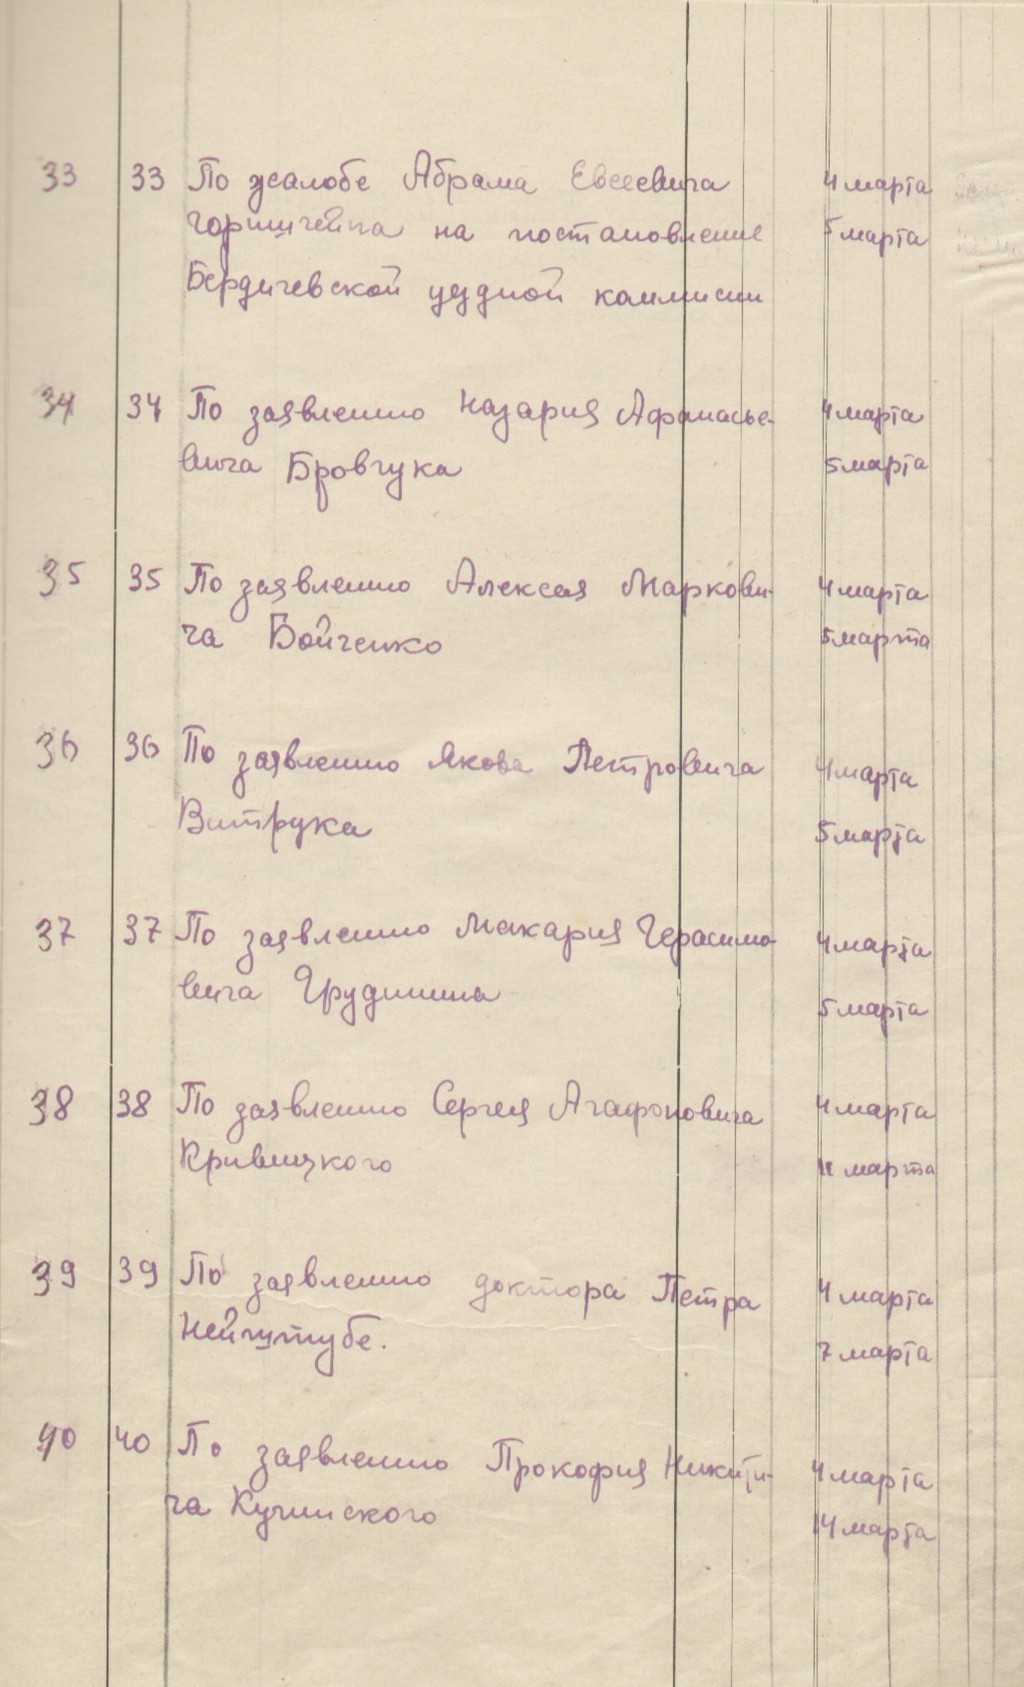 33 33 По жалобе Абрама Евсеевича 4 марта
Горнштейна на постановление 5 марта
Бердичевской уездной коммисии
34 34 По заявлению Назария Афанасье- 4 марта
вича Бровчука 5 марта
35 35 По заявлению Алексея Маркови- 4 марта
ча Бойченко 5 марта
36 36 По заявлению Якова Петровича 4 марта
Витрука 5 марта
37 37 По заявлению Макария Герасимо- 4 марта
вича Грудинина 5 марта
38 38 По заявлению Сергея Агафоновича 4 марта
Кривицкого марта
39 39 По заявлению доктора Петра 4 марта
Нейштубе. 7 марта
40 40 По заявлению Прокофия Никити- 4 марта
ча Кучинского 14 марта